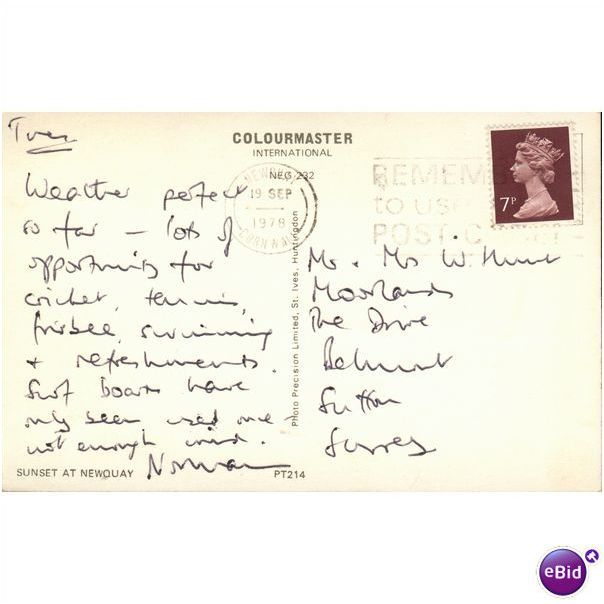 Tues
COLOURMASTER
INTERNATIONAL
NEG 232
NEWQUAY
19 SEP
1978
CORNWALL
REMEMB
to use
POST C
7P
Weather perfect
so far – lots of
opportunity for
cricket, tennis,
frisbee, swimming
+ refreshments.
Surf boards have
only been used once –
not enough wind.
Norman
Mr. Mrs W. Hunt
Moorlands
The Drive
Belmont
Sutton
Surrey
Photo Precision Limited, St. Ives, Huntingdon
SUNSET AT NEWQUAY
PT214
eBid